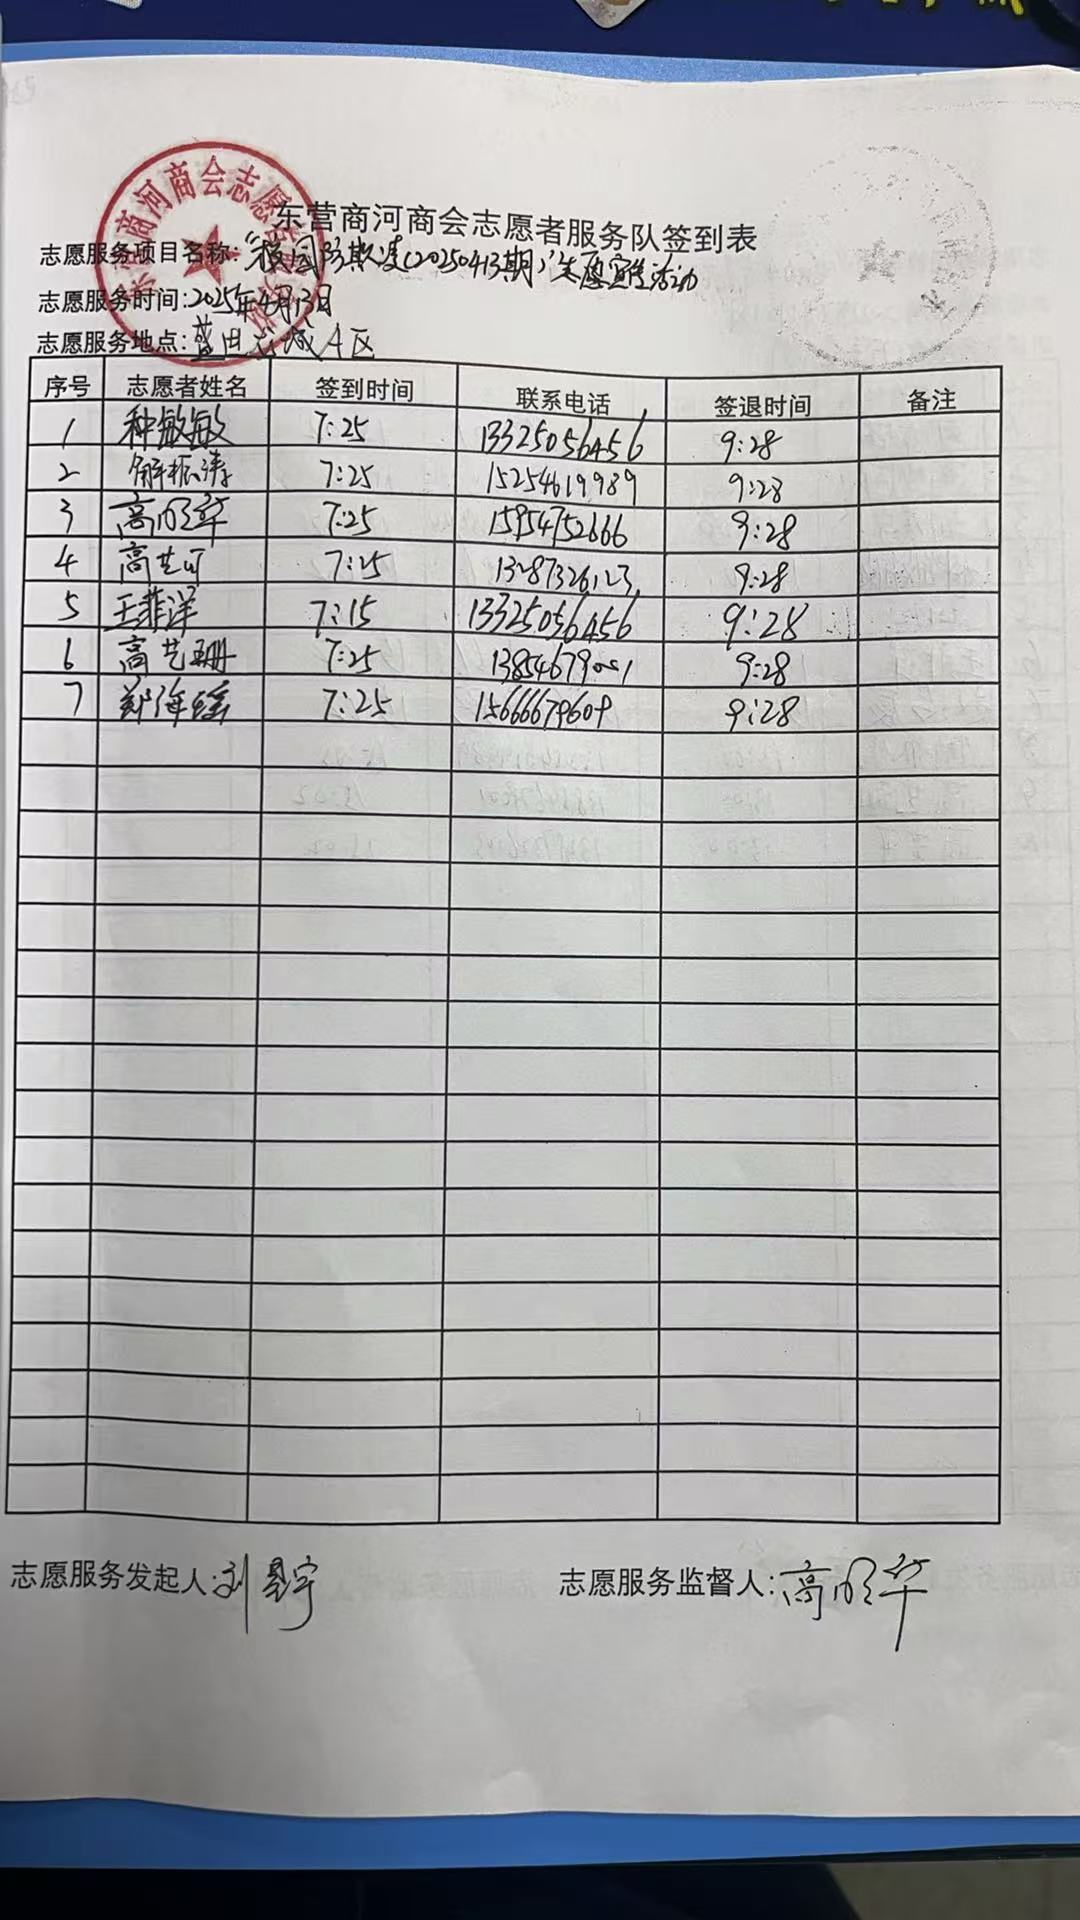 东营商河商会志愿者服务队签到表
志愿服务项目名称:"报国 期 (20250413期)"志愿宣传活动
志愿服务时间:2025年4月13日
志愿服务地点:蓝田 城A区
序号 志愿者姓名 签到时间 联系电话 签退时间 备注
1 种敏敏 7:25 13325056456 9:28
2 解振涛 7:25 15254619989 9:28
3 高明华 7:25 15954752666 9:28
4 高艺可 7:25 13287326123 9:28
5 王菲洋 7:15 13325056456 9:28
6 高艺珊 7:25 13854679001 9:28
7 郑海瑶 7:25 15666679609 9:28
志愿服务发起人:刘 宇
志愿服务监督人:高明华